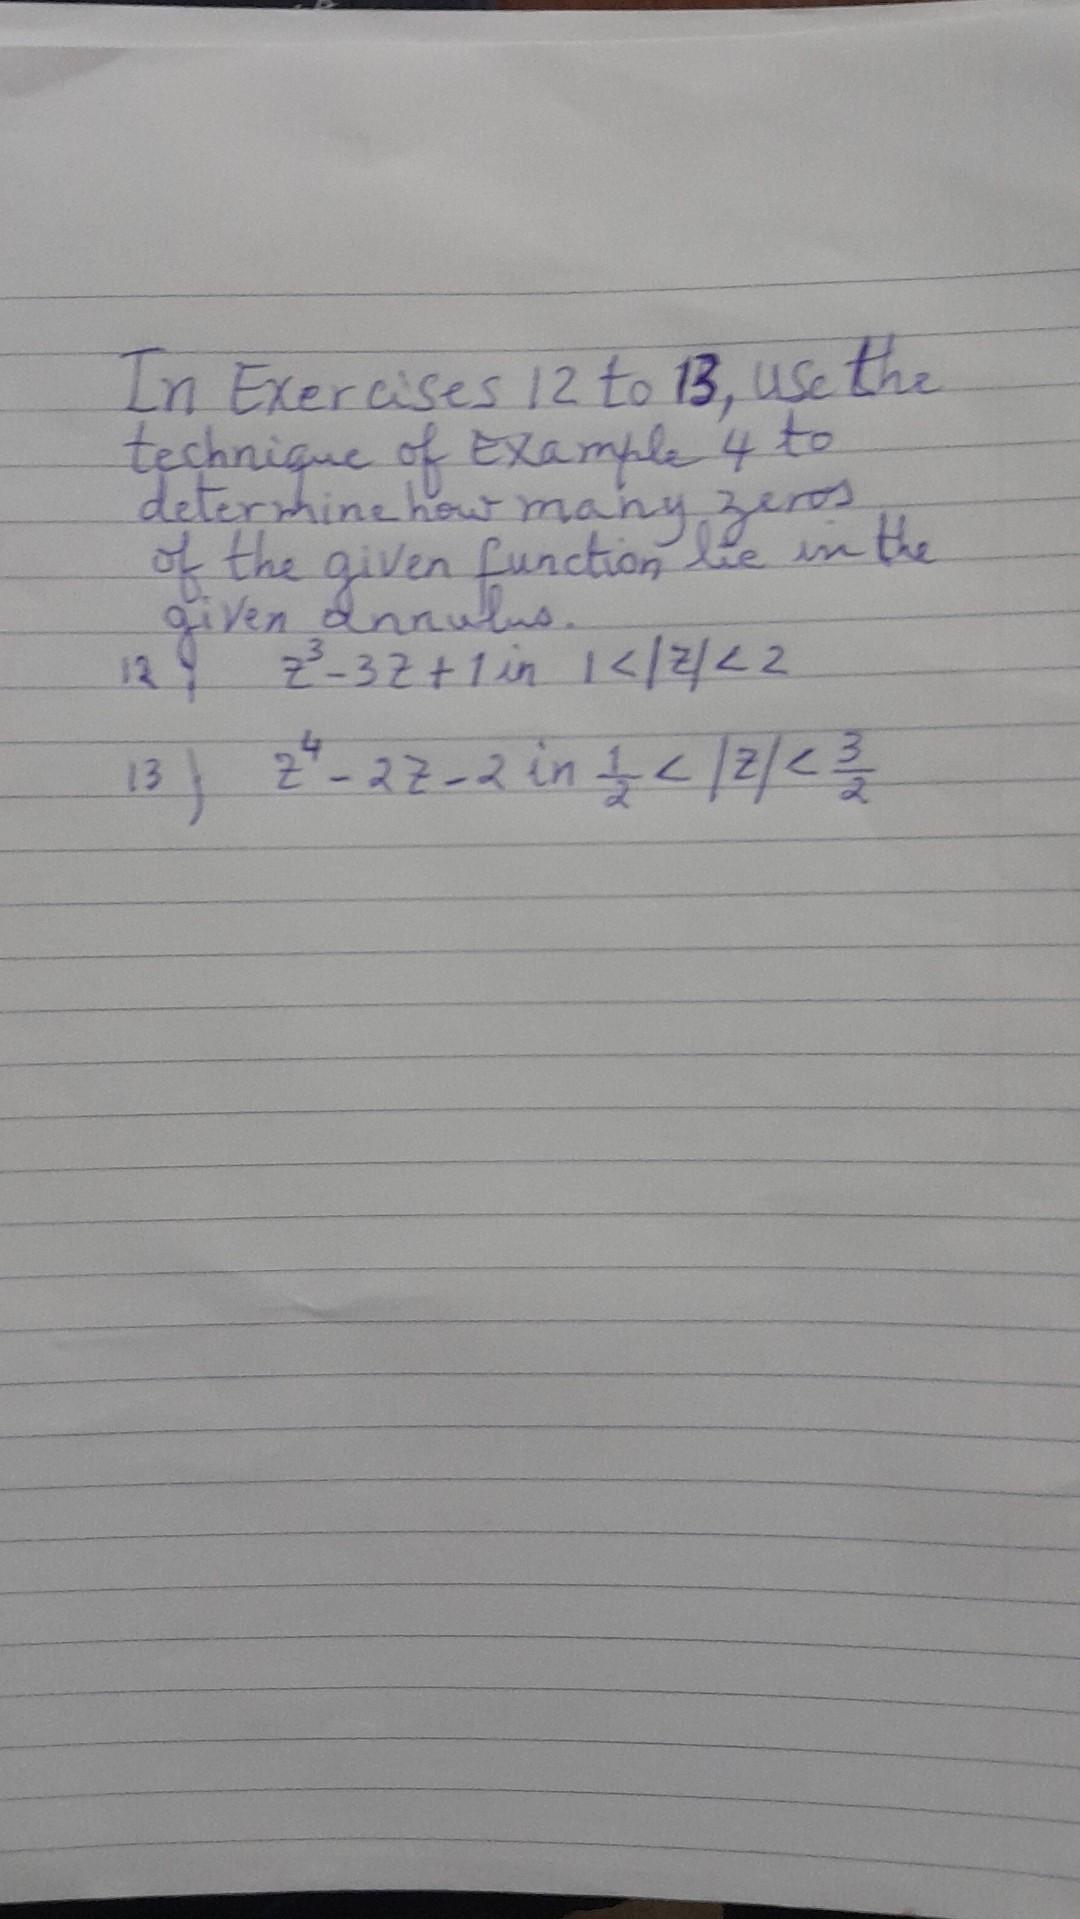 In Exercises 12 to 13, use the
technique of Example 4 to
determine how many zeros
of the given function lie in the
given annulus.
12) z³-3z+1 in 1<|z|<2
13) z⁴-2z-2 in 1/2 < |z| < 3/2